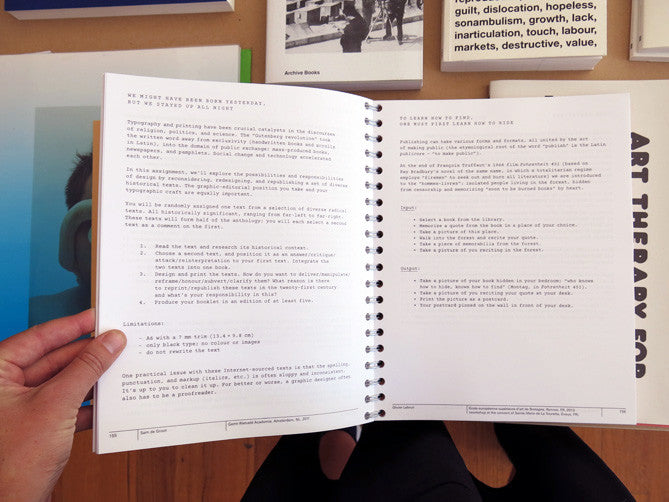 Archive Books
guilt, dislocation, hopeless,
sonambulism, growth, lack,
inarticulation, touch, labour,
markets, destructive, value,
ART THERAPY FOR
WE MIGHT HAVE BEEN BORN YESTERDAY,
BUT WE STAYED UP ALL NIGHT
Typography and printing have been crucial catalysts in the discourses
of religion, politics, and science. The "Gutenberg revolution" took
the written word away from exclusivity (handwritten books and scrolls
in Latin), into the domain of public exchange: mass-produced books,
newspapers, and pamphlets. Social change and technology accelerated
each other.
In this assignment, we'll explore the possibilities and responsibilities
of design by reconsidering, redesigning, and republishing a set of diverse
historical texts. The graphic-editorial position you take and your
typographic craft are equally important.
You will be randomly assigned one text from a selection of diverse radical
texts. All historically significant, ranging from far-left to far-right.
These texts will form half of the anthology: you will each select a second
text as a comment on the first.
1. Read the text and research its historical context.
2. Choose a second text, and position it as an answer/critique/
attack/reinterpretation to your first text. Integrate the
two texts into one book.
3. Design and print the texts. How do you want to deliver/manipulate/
reframe/honour/subvert/clarify them? What reason is there
to reprint/republish these texts in the twenty-first century
and what's your responsibility in this?
4. Produce your booklets in an edition of at least five.
Limitations:
- A6 with a 7 mm trim (13.4 × 9.8 cm)
- only black type: no colour or images
- do not rewrite the text
One practical issue with these Internet-sourced texts is that the spelling,
punctuation, and markup (italics, etc.) is often sloppy and inconsistent.
It's up to you to clean it up. For better or worse, a graphic designer often
also has to be a proofreader.
Sam de Groot
Gerrit Rietveld Academie, Amsterdam, NL, 2011
TO LEARN HOW TO FIND,
ONE MUST FIRST LEARN HOW TO HIDE
Publishing can take various forms and formats, all united by the act
of making public (the etymological root of the word "publish" is the Latin
publicare – "to make public").
At the end of François Truffaut's 1966 film Fahrenheit 451 (based on
Ray Bradbury's novel of the same name, in which a totalitarian regime
employs "firemen" to seek out and burn all literature) we are introduced
to the "hommes-livres": isolated people living in the forest, hidden
from censorship and memorizing "soon to be burned books" by heart.
Input:
• Select a book from the library.
• Memorize a quote from the book in a place of your choice.
• Take a picture of this place.
• Walk into the forest and recite your quote.
• Take a piece of memorabilia from the forest.
• Take a picture of you reciting in the forest.
Output:
• Take a picture of your book hidden in your bedroom: "who knows
how to hide, knows how to find" (Montag, in Fahrenheit 451).
• Take a picture of you reciting your quote at your desk.
• Print the picture as a postcard.
• Your postcard pinned on the wall in front of your desk.
Olivier Lebrun